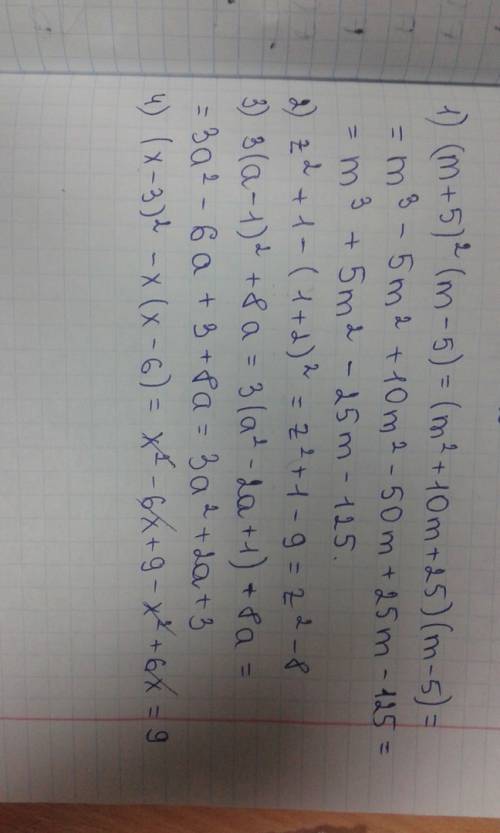 1) (m+5)² (m-5) = (m²+10m+25)(m-5) =
= m³ - 5m² + 10m² - 50m + 25m - 125 =
= m³ + 5m² - 25m - 125.
2) z² + 1 - (1+2)² = z² + 1 - 9 = z² - 8
3) 3(a-1)² + 8a = 3(a² - 2a + 1) + 8a =
= 3a² - 6a + 3 + 8a = 3a² + 2a + 3
4) (x-3)² - x(x-6) = x² - 6x + 9 - x² + 6x = 9